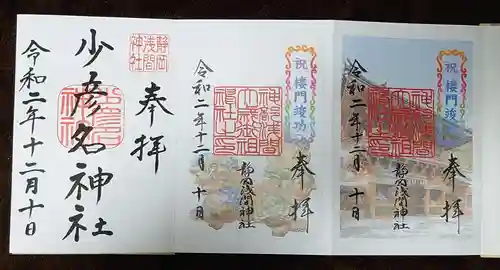 奉拝
静岡
浅間
神社
少彦名神社
令和二年十二月十日
祝 楼門竣功
奉拝
静岡浅間神社
令和二年十二月十日
祝 楼門竣功
奉拝
静岡浅間神社
令和二年十二月十日